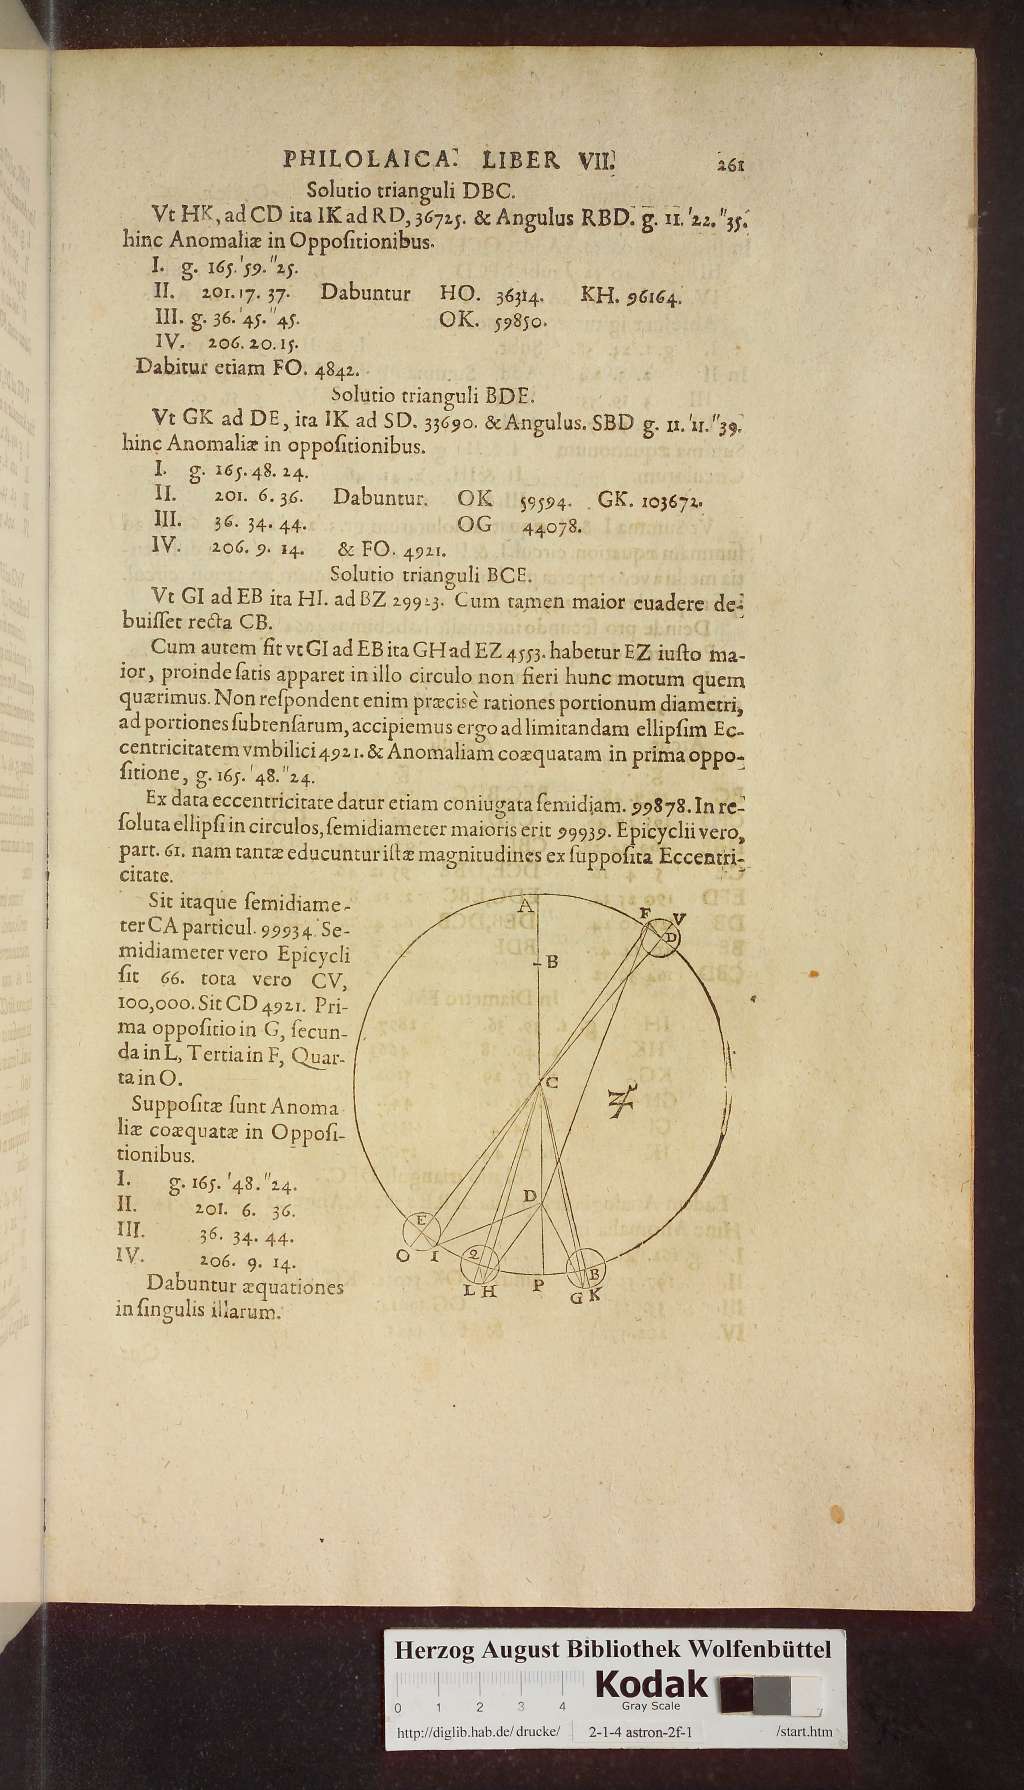 PHILOLAICA. LIBER VII. 261
Solutio trianguli DBC.
Vt HK, ad CD ita IK ad RD, 36725. & Angulus RBD. g. 11.'22."35.
hinc Anomaliæ in Oppoſitionibus.
I. g. 165.'59."25.
II. 201.17. 37. Dabuntur HO. 36314. KH. 96164.
III. g. 36.'45."45. OK. 59850.
IV. 206. 20. 15.
Dabitur etiam FO. 4842.
Solutio trianguli BDE.
Vt GK ad DE, ita IK ad SD. 33690. & Angulus. SBD g. 11.'11."39.
hinc Anomaliæ in oppoſitionibus.
I. g. 165. 48. 24.
II. 201. 6. 36. Dabuntur. OK 59594. GK. 103672.
III. 36. 34. 44. OG 44078.
IV. 206. 9. 14. & FO. 4921.
Solutio trianguli BCE.
Vt GI ad EB ita HI. ad BZ 29923. Cum tamen maior euadere de-
buiſſet recta CB.
Cum autem ſit vt GI ad EB ita GH ad EZ 4553. habetur EZ iuſto ma-
ior, proinde ſatis apparet in illo circulo non fieri hunc motum quem
quærimus. Non reſpondent enim præcisè rationes portionum diametri,
ad portiones ſubtenſarum, accipiemus ergo ad limitandam ellipſim Ec-
centricitatem vmbilici 4921. & Anomaliam coæquatam in prima oppo-
ſitione, g. 165.'48."24.
Ex data eccentricitate datur etiam coniugata ſemidiam. 99878. In re-
ſoluta ellipſi in circulos, ſemidiameter maioris erit 99939. Epicyclii vero,
part. 61. nam tantæ educuntur iſtæ magnitudines ex ſuppoſita Eccentri-
citate.
Sit itaque ſemidiame-
ter CA particul. 99934. Se-
midiameter vero Epicycli
ſit 66. tota vero CV,
100,000. Sit CD 4921. Pri-
ma oppoſitio in G, ſecun-
da in L, Tertia in F, Quar-
ta in O.
Suppoſitæ ſunt Anoma
liæ coæquatæ in Oppoſi-
tionibus.
I. g. 165. '48. "24.
II. 201. 6. 36.
III. 36. 34. 44.
IV. 206. 9. 14.
Dabuntur æquationes
in ſingulis illarum.
A
F V
D
B
C
♃
D
E
O I
2
L H
P
B
G K
Herzog August Bibliothek Wolfenbüttel
Kodak
Gray Scale
0 1 2 3 4 7
http://diglib.hab.de/drucke/ 2-1-4 astron-2f-1 /start.htm